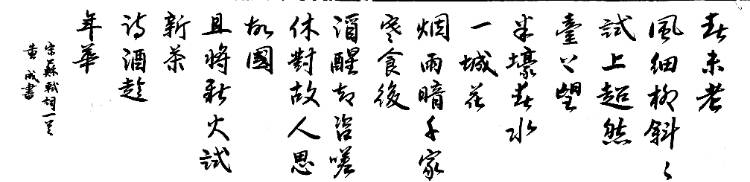 春未老
風細柳斜〻
試上超然
臺上望
半壕春水
一城花
烟雨暗千家
寒食後
酒醒却咨嗟
休對故人思
故國
且將新火試
新茶
詩酒趁
年華
宋蘇軾詞一首
黄成書